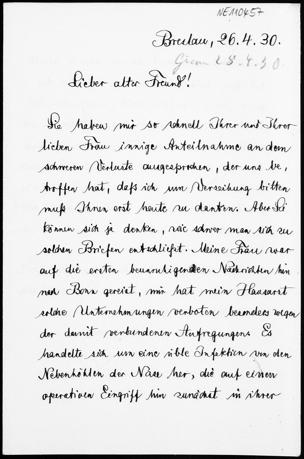 NE110457
Breslau, 26.4.30.
28.4.30.
Lieber alter Freund!
Sie haben mir so schnell Ihrer und Ihrer
lieben Frau innige Anteilnahme an dem
schweren Verluste ausgesprochen, der uns be,
troffen hat, daß ich um Verzeihung bitten
muß Ihnen erst heute zu danken. Aber Sie
können sich ja denken, wie schwer man sich zu
solchen Briefen entschließt. Meine Frau war
auf die ersten beunruhigenden Nachrichten hin
nach Bonn gereist, mir hat mein Hausarzt
solche Unternehmungen verboten besonders wegen
der damit verbundenen Aufregungen. Es
handelte sich um eine üble Infektion von den
Nebenhöhlen der Nase her, die auf einen
operativen Eingriff hin zunächst in ihrer